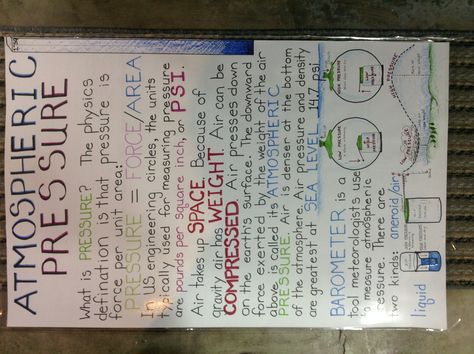 ATMOSPHERIC
PRESSURE
What is PRESSURE? The physics
defination is that pressure is
force per unit area!
PRESSURE = FORCE/AREA
In US engineering circles, the units
typically used for measuring pressure
are pounds per square inch, or PSI.
Air takes up SPACE. Because of
gravity air has WEIGHT. Air can be
COMPRESSED. Air presses down
on the earth's surface. The downward
force exerted by the weight of the air
above is called its ATMOSPHERIC
PRESSURE. Air is denser at the bottom
of the atmosphere. Air pressure and density
are greatest at SEA LEVEL 14.7 psi
BAROMETER is a
tool meteorologists use
to measure atmospheric
pressure. There are
two kinds: aneroid/air
liquid
LOW PRESSURE
HIGH PRESSURE
LOW PRESSURE
HIGH PRESSURE
LOW PRESSURE